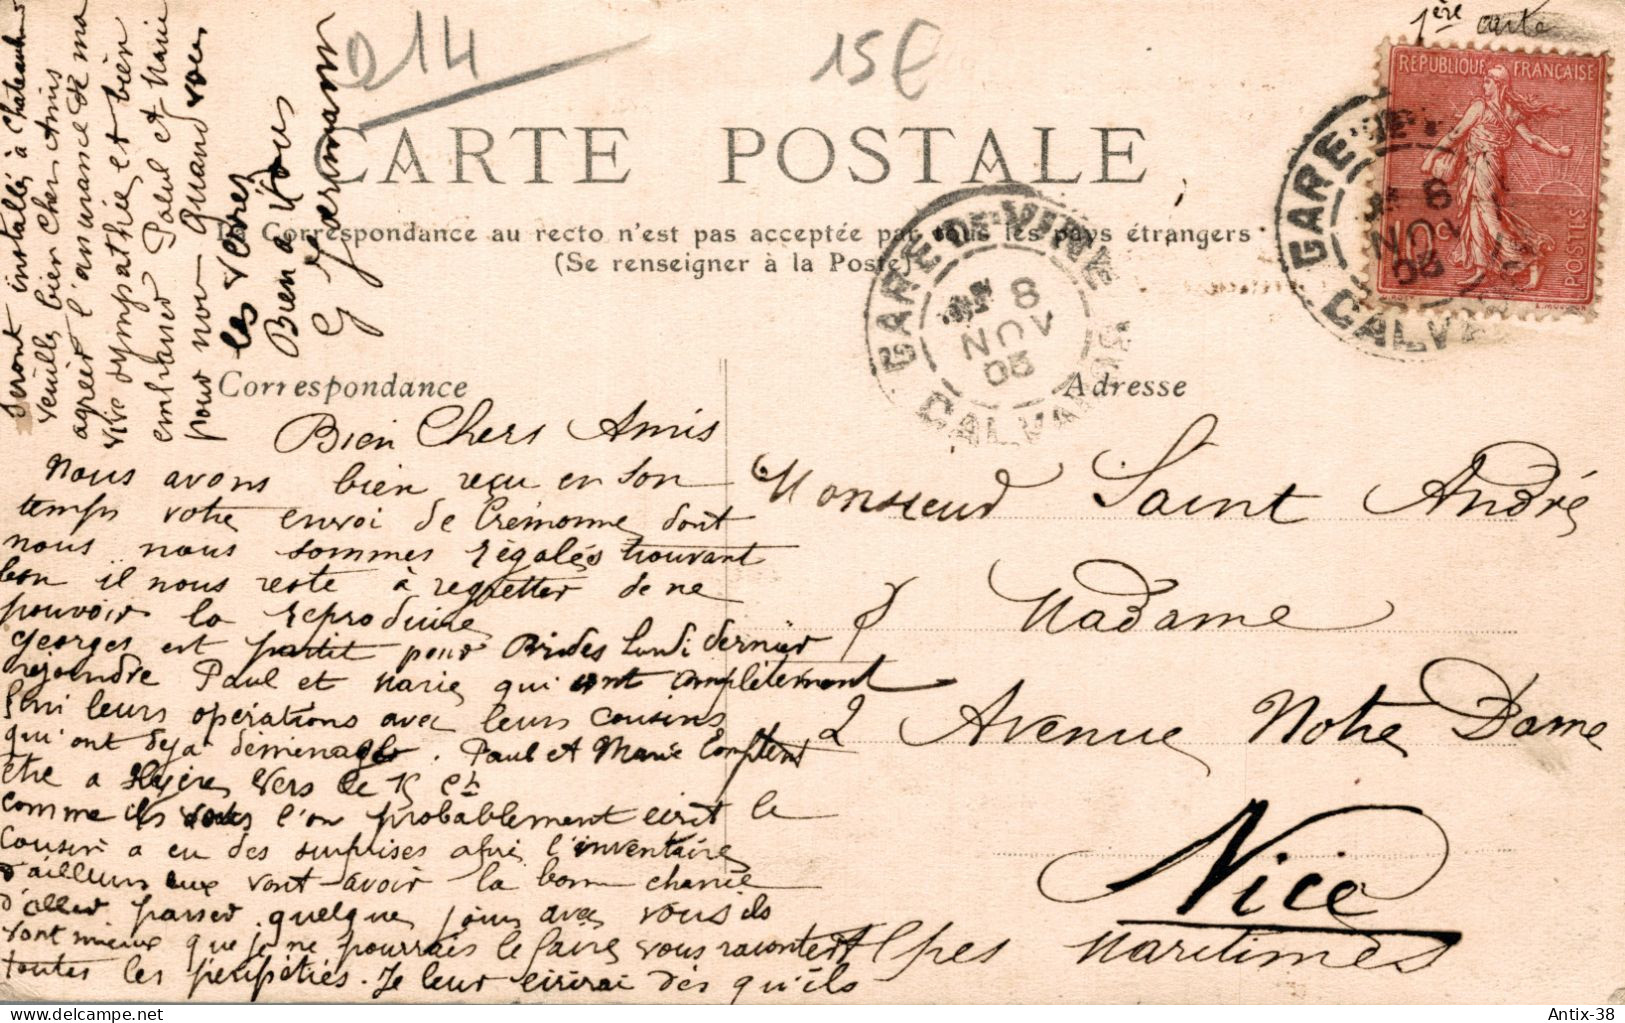 1ère carte
014
15€
REPUBLIQUE FRANÇAISE
10c
POSTES
CARTE POSTALE
La Correspondance au recto n'est pas acceptée par tous les pays étrangers
(Se renseigner à la Poste)
GARE DE VIRE
8
NOV
05
CALVADOS
GARE DE
8
NOV
05
CALVADOS
Correspondance
Adresse
Bien Chers Amis
Nous avons bien reçu en son
temps votre envoi de Crémonne dont
nous nous sommes régalés trouvant
bon il nous reste à regretter de ne
pouvoir la reproduire
Georges est partit pour Brides Lundi dernier
rejoindre Paul et Marie qui ont complètement
fini leurs opérations avec leurs cousins
qui ont deja déménagés. Paul et Marie comptent
être a Hyères vers le 15 ct
comme ils vous l'on probablement écrit le
cousin a eu des surprises après l'inventaire
d'ailleurs eux vont avoir la bonne chance
d'aller passer quelques jours avec vous ils
vont mieux que je ne pourrais le faire vous racontert
toutes les péripéties. Je leur écrirai dès qu'ils
seront installés à Chateau
veuillez bien Chers Amis
agréer l'assurance de ma
vive sympathie et bien
embrasser Paul et Marie
pour nous quand vous
les verrez
Bien a Vous
G Germain
Monsieur Saint André
& Madame
2 Avenue Notre Dame
Nice
Alpes Maritimes
delcampe.net
Antix-38